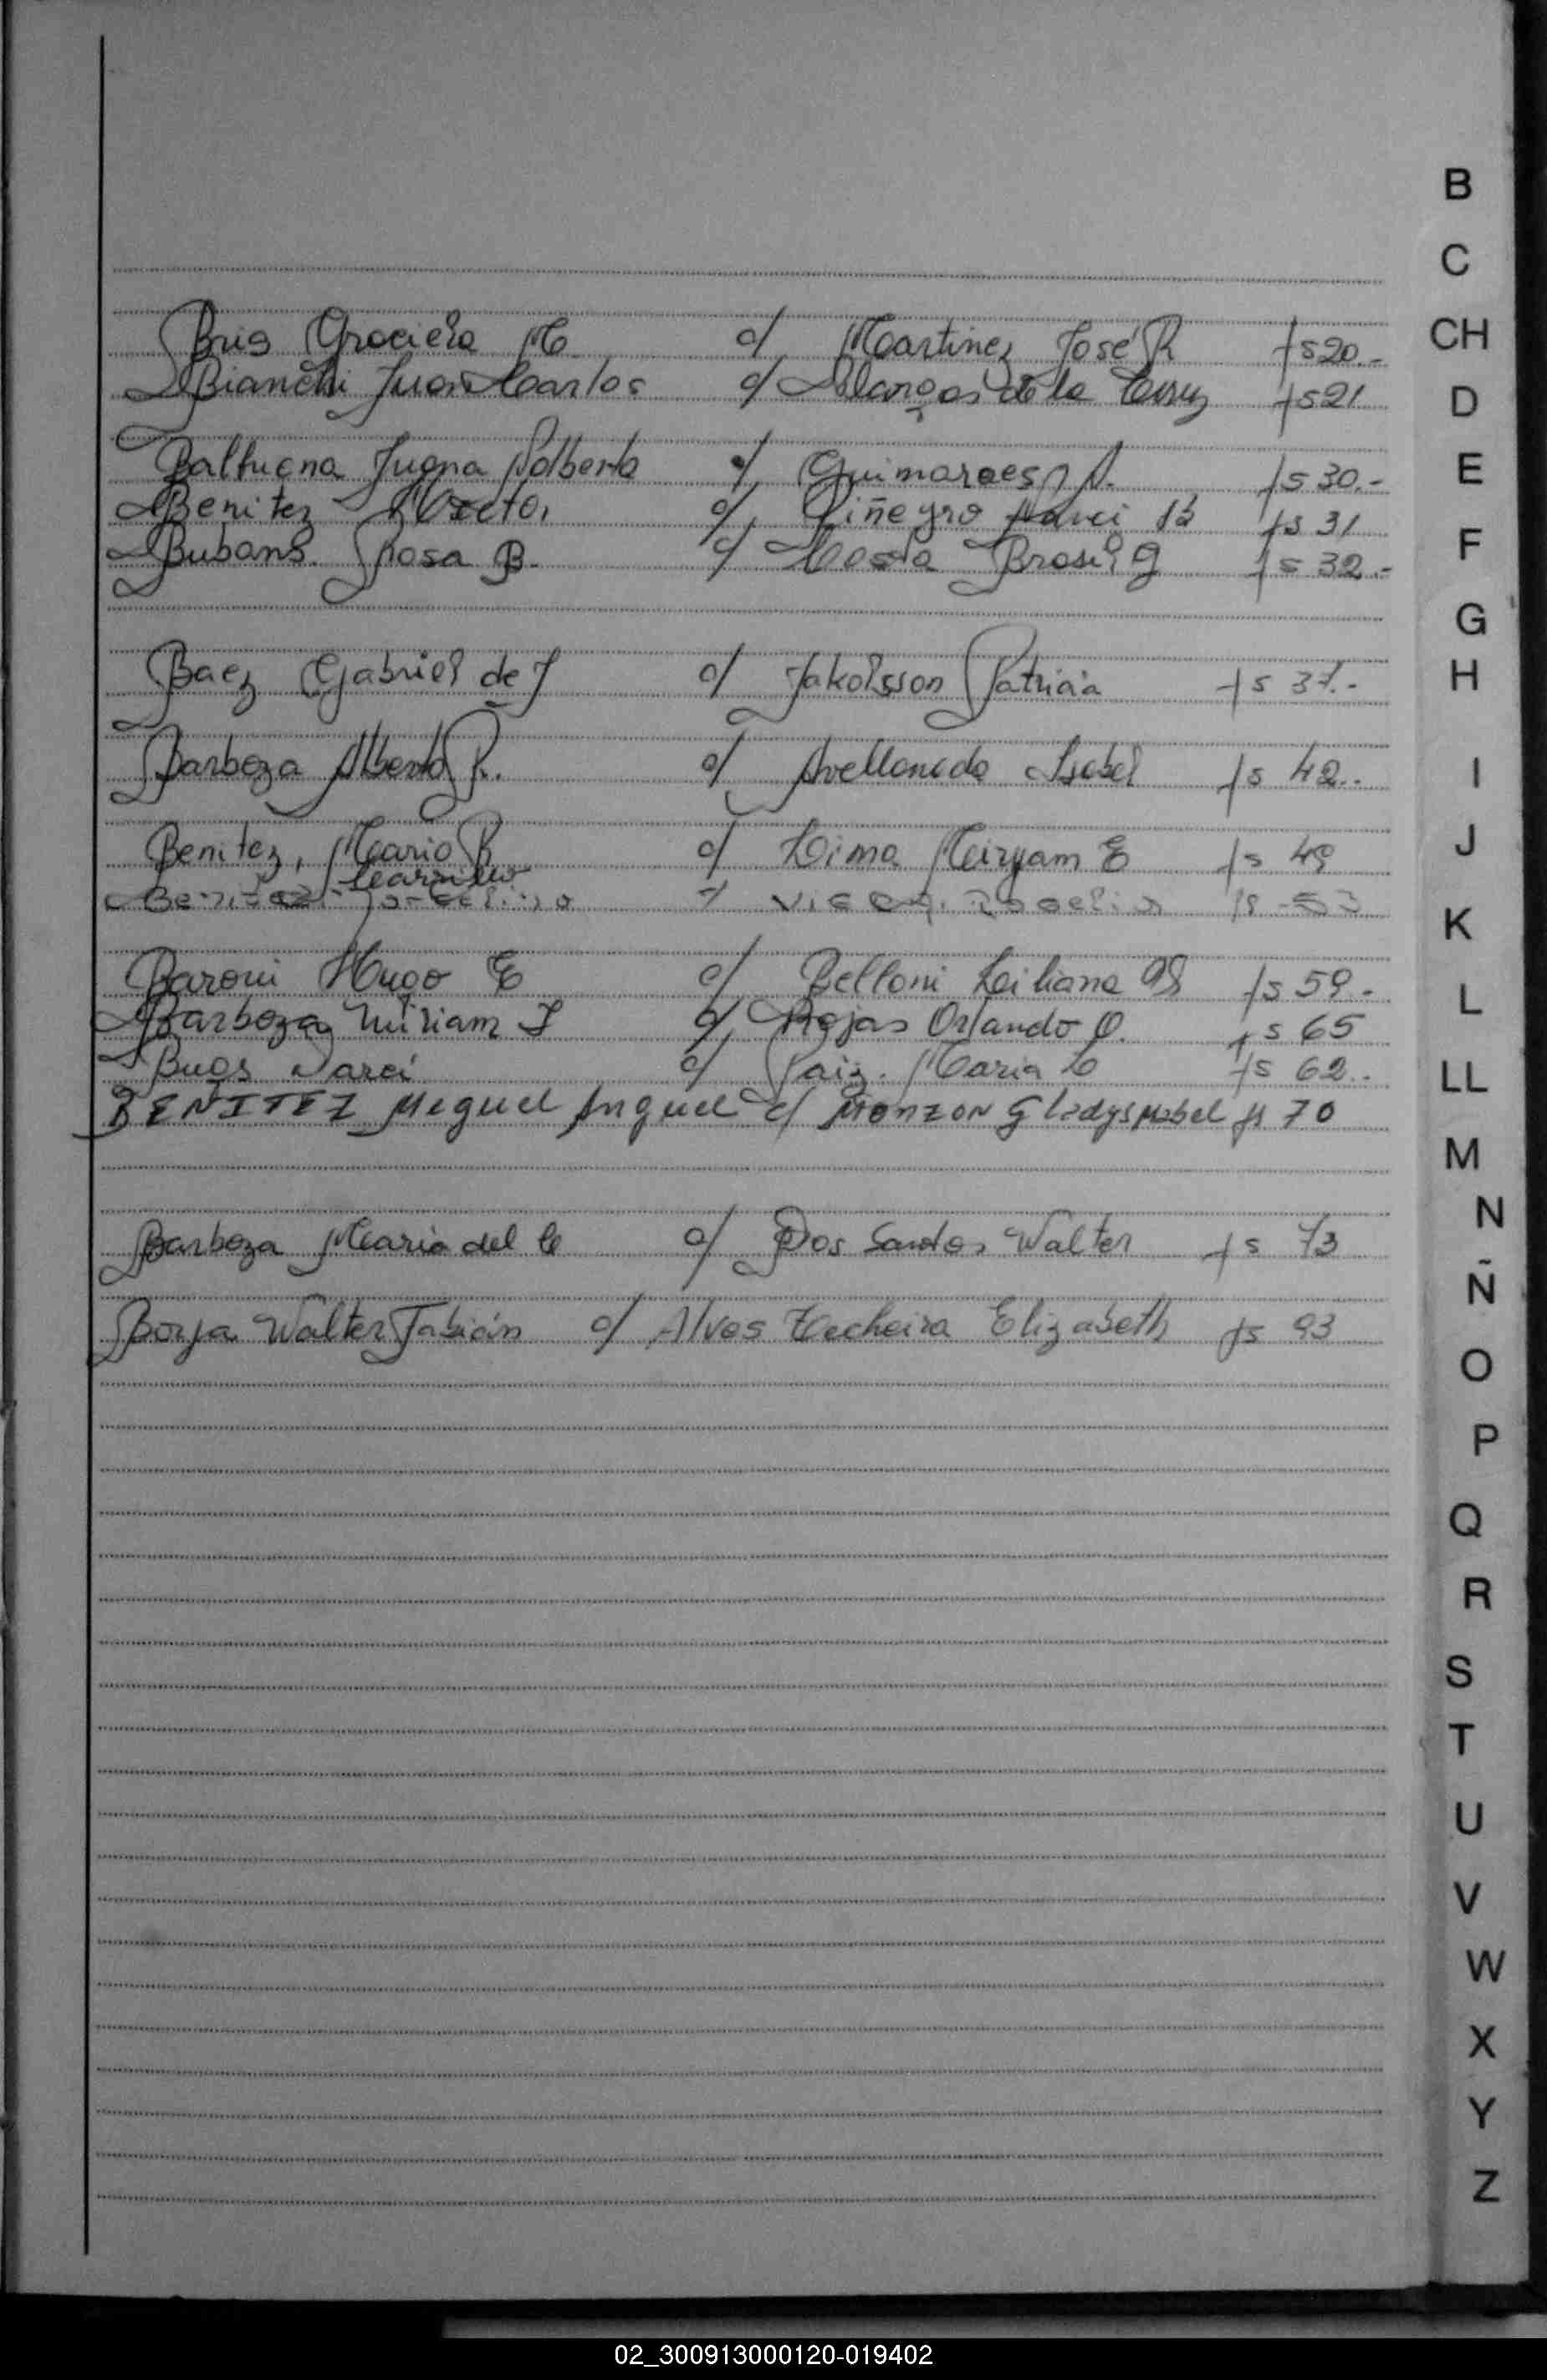 Bris Graciela M c/ Martinez José R fs 20.-
Bianchi Juan Carlos c/ de la Cruz fs 21
Juana Norberta c/ Guimaraes A. fs 30.-
Benitez c/ Piñeyro fs 31
Rosa B. c/ Costa Brasil g fs 32.-
Baez Gabriel de J c/ Jakobsson Patricia fs 37.-
Barboza Alberto R. c/ Avellaneda Isabel fs 42..
Benitez, Mario R c/ Lima Miryam E fs 49
Benitez c/ fs 53
Baroni Hugo E c/ Belloni Liliana fs 59.-
Barboza Miriam I c/ Rojas Orlando O. fs 65
Bugs Darci c/ Paiz. Maria C fs 62..
BENITEZ Miguel Anguel c/ MONZON Gladys Mabel fs 70
Barboza Maria del C c/ Dos Santos Walter fs 73
Borja Walter Fabián c/ Alves Elizabeth fs 93
B
C
CH
D
E
F
G
H
I
J
K
L
LL
M
N
Ñ
O
P
Q
R
S
T
U
V
W
X
Y
Z
02_300913000120-019402